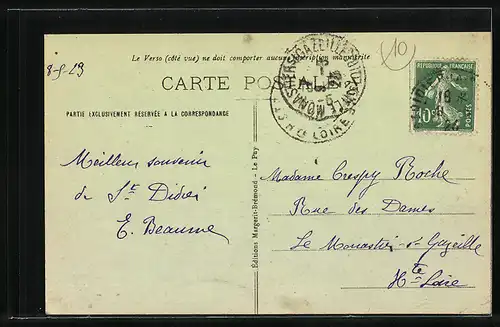 Le Verso (côté vue) ne doit comporter aucune inscription manuscrite
8-5-29
10
CARTE POSTALE
RÉPUBLIQUE FRANÇAISE
10c
POSTES
PARTIE EXCLUSIVEMENT RÉSERVÉE A LA CORRESPONDANCE
HTE LOIRE
Meilleur souvenir
de St Didier
E. Beaume
Éditions Margerit-Brémond - Le Puy
Madame Crespy Roche
Rue des Dames
Le Monastier-s-Gazeille
Hte Loire